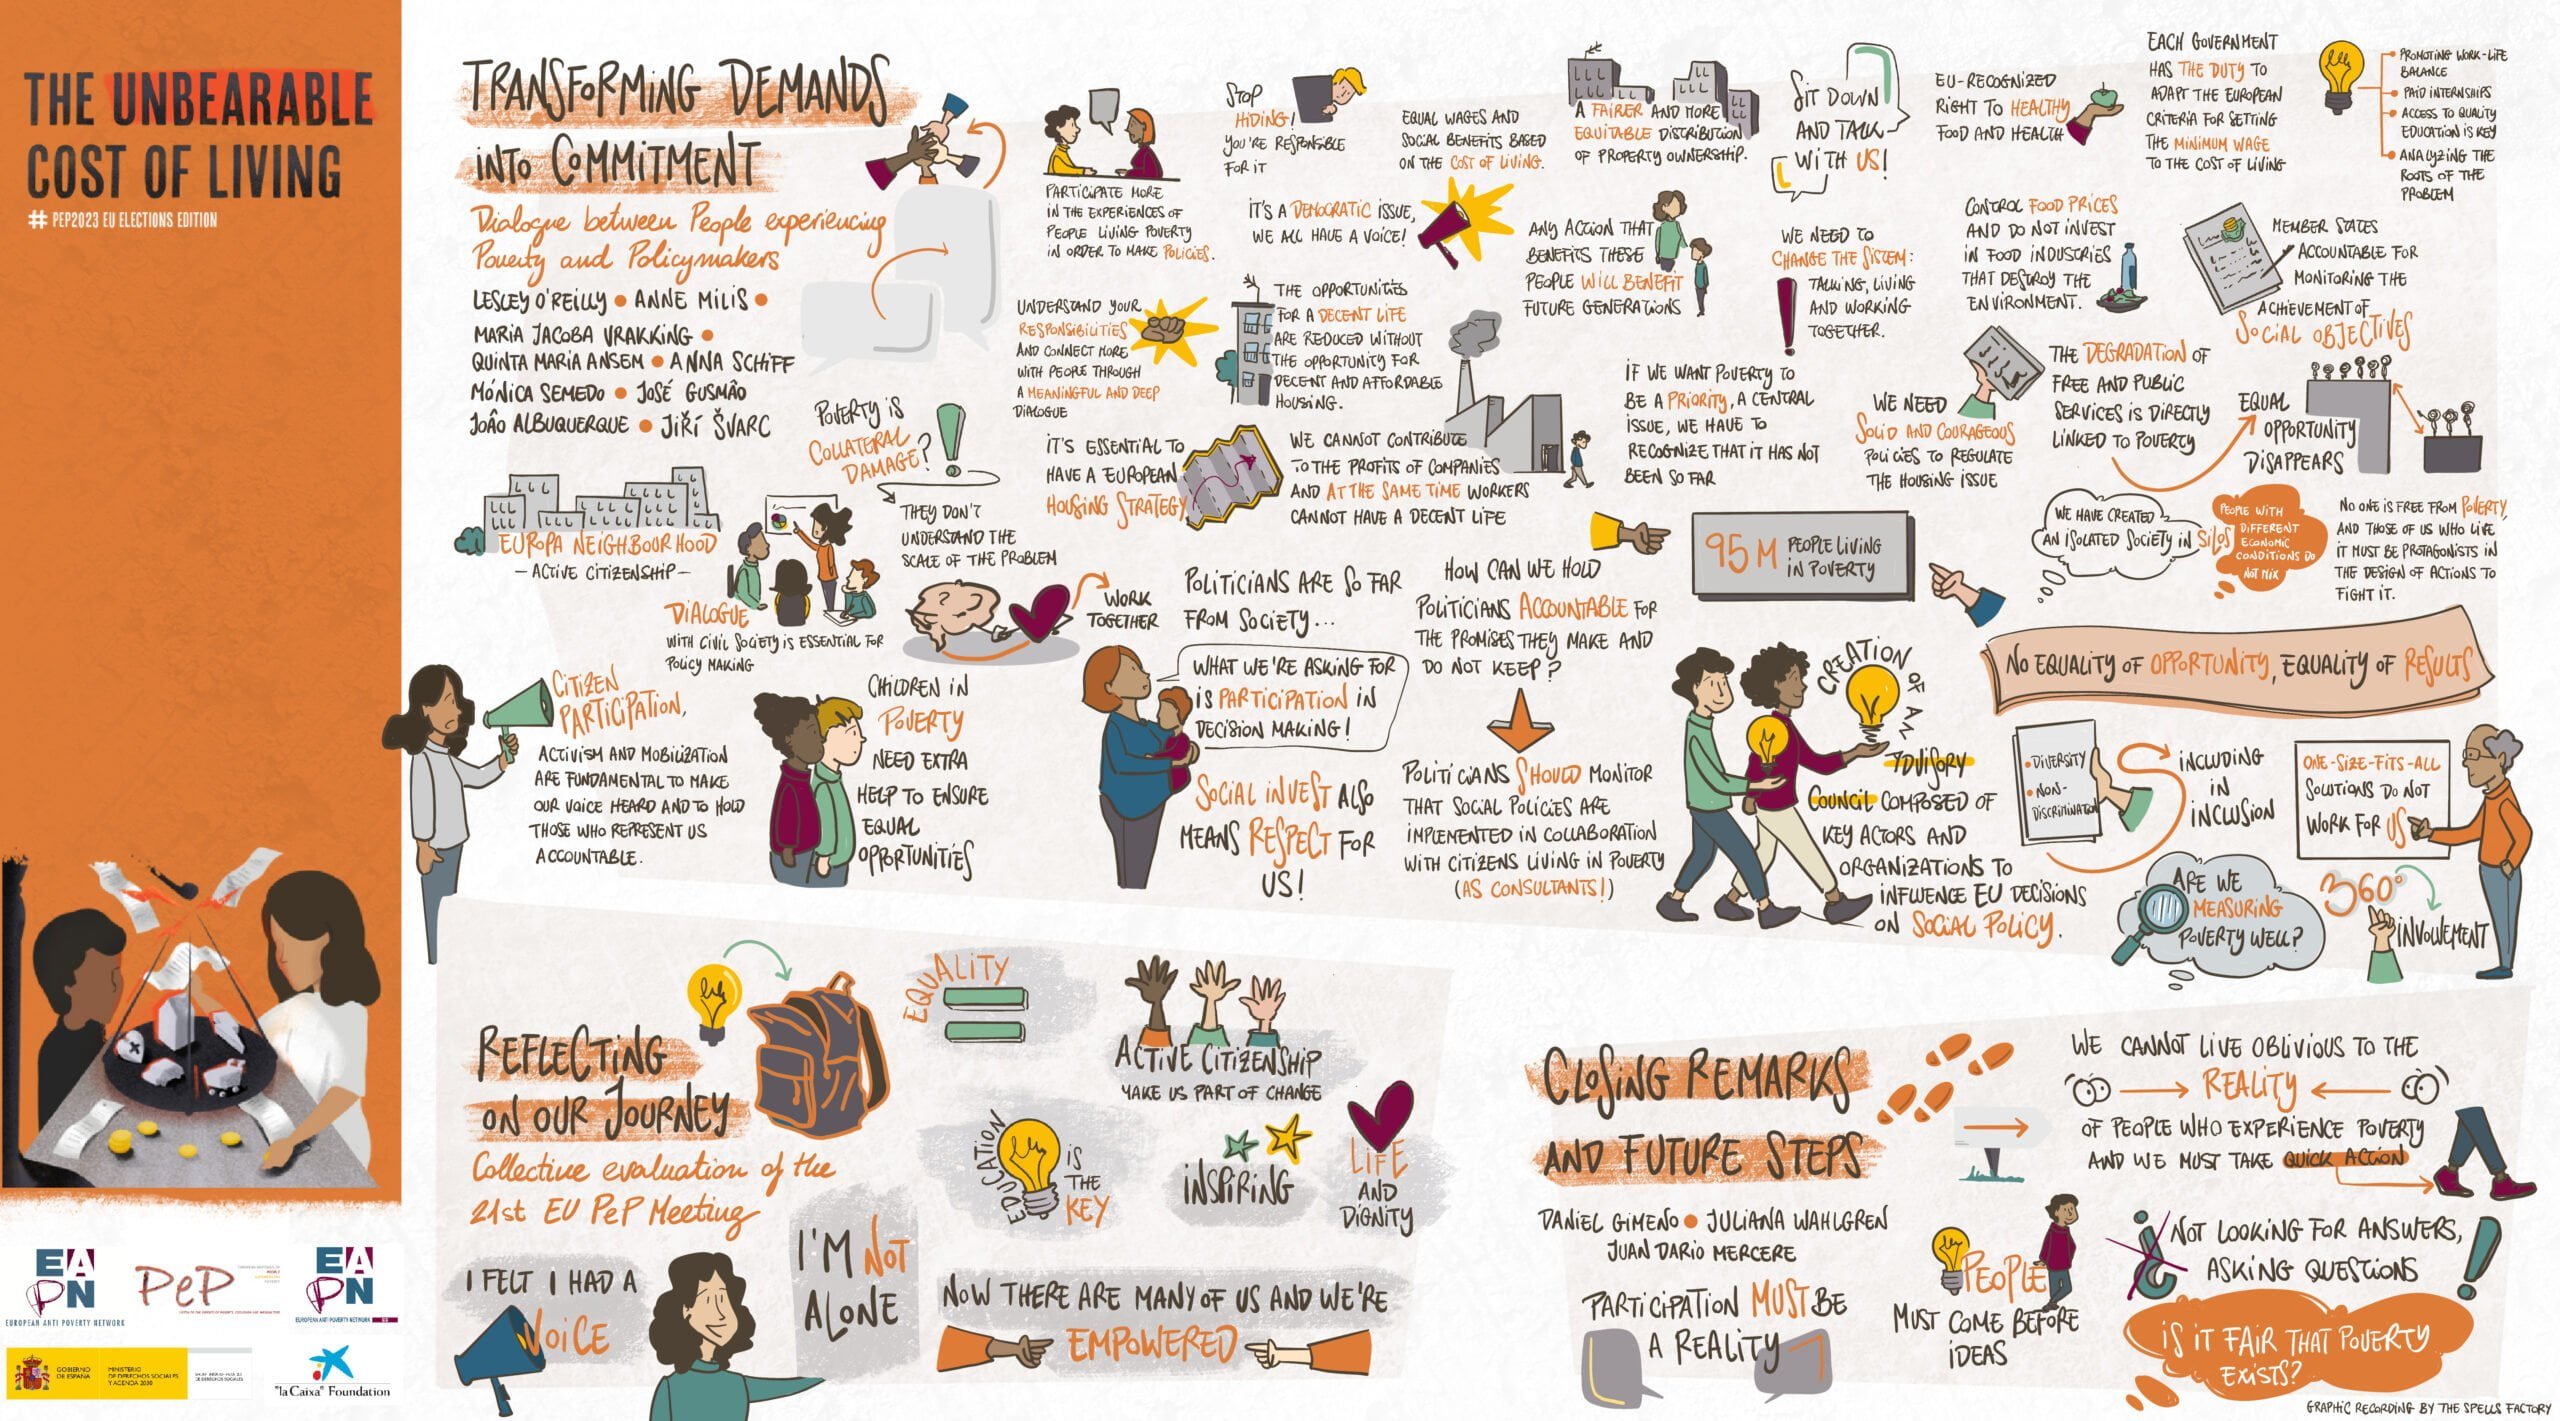 THE UNBEARABLE
COST OF LIVING
# PEP2023 EU ELECTIONS EDITION
EAPN
EUROPEAN ANTI POVERTY NETWORK
PeP
EAPN
EUROPEAN ANTI POVERTY NETWORK
GOBIERNO
DE ESPAÑA
MINISTERIO
DE DERECHOS SOCIALES
Y AGENDA 2030
"la Caixa" Foundation
TRANSFORMING DEMANDS
INTO COMMITMENT
Dialogue between People experiencing
Poverty and Policymakers
LESLEY O'REILLY • ANNE MILIS •
MARIA JACOBA VRAKKING •
QUINTA MARIA ANSEM • ANNA SCHIFF
MÓNICA SEMEDO • JOSÉ GUSMÃO
JOÃO ALBUQUERQUE • JIŘÍ ŠVARC
PARTICIPATE MORE
IN THE EXPERIENCES OF
PEOPLE LIVING POVERTY
IN ORDER TO MAKE POLICIES.
STOP
HIDING!
YOU'RE RESPONSIBLE
FOR IT
EQUAL WAGES AND
SOCIAL BENEFITS BASED
ON THE COST OF LIVING.
A FAIRER AND MORE
EQUITABLE DISTRIBUTION
OF PROPERTY OWNERSHIP.
SIT DOWN
AND TALK
WITH US!
EU-RECOGNIZED
RIGHT TO HEALTHY
FOOD AND HEALTH
EACH GOVERNMENT
HAS THE DUTY TO
ADAPT THE EUROPEAN
CRITERIA FOR SETTING
THE MINIMUM WAGE
TO THE COST OF LIVING
• PROMOTING WORK-LIFE
BALANCE
• PAID INTERNSHIPS
• ACCESS TO QUALITY
EDUCATION IS KEY
• ANALYZING THE
ROOTS OF THE
PROBLEM
IT'S A DEMOCRATIC ISSUE,
WE ALL HAVE A VOICE!
ANY ACTION THAT
BENEFITS THESE
PEOPLE WILL BENEFIT
FUTURE GENERATIONS
WE NEED TO
CHANGE THE SISTEM:
TALKING, LIVING
AND WORKING
TOGETHER.
CONTROL FOOD PRICES
AND DO NOT INVEST
IN FOOD INDUSTRIES
THAT DESTROY THE
ENVIRONMENT.
MEMBER STATES
ACCOUNTABLE FOR
MONITORING THE
ACHIEVEMENT OF
SOCIAL OBJECTIVES
UNDERSTAND YOUR
RESPONSIBILITIES
AND CONNECT MORE
WITH PEOPLE THROUGH
A MEANINGFUL AND DEEP
DIALOGUE
THE OPPORTUNITIES
FOR A DECENT LIFE
ARE REDUCED WITHOUT
THE OPPORTUNITY FOR
DECENT AND AFFORDABLE
HOUSING.
IF WE WANT POVERTY TO
BE A PRIORITY, A CENTRAL
ISSUE, WE HAVE TO
RECOGNIZE THAT IT HAS NOT
BEEN SO FAR
WE NEED
SOLID AND COURAGEOUS
POLICIES TO REGULATE
THE HOUSING ISSUE
THE DEGRADATION OF
FREE AND PUBLIC
SERVICES IS DIRECTLY
LINKED TO POVERTY
EQUAL
OPPORTUNITY
DISAPPEARS
POVERTY IS
COLLATERAL
DAMAGE?
THEY DON'T
UNDERSTAND THE
SCALE OF THE PROBLEM
IT'S ESSENTIAL TO
HAVE A EUROPEAN
HOUSING STRATEGY
WE CANNOT CONTRIBUTE
TO THE PROFITS OF COMPANIES
AND AT THE SAME TIME WORKERS
CANNOT HAVE A DECENT LIFE
EUROPA NEIGHBOURHOOD
- ACTIVE CITIZENSHIP -
DIALOGUE
WITH CIVIL SOCIETY IS ESSENTIAL FOR
POLICY MAKING
WORK
TOGETHER
POLITICIANS ARE SO FAR
FROM SOCIETY...
HOW CAN WE HOLD
POLITICIANS ACCOUNTABLE FOR
THE PROMISES THEY MAKE AND
DO NOT KEEP?
95 M PEOPLE LIVING
IN POVERTY
WE HAVE CREATED
AN ISOLATED SOCIETY IN SILOS
PEOPLE WITH
DIFFERENT
ECONOMIC
CONDITIONS DO
NOT MIX
NO ONE IS FREE FROM POVERTY,
AND THOSE OF US WHO LIVE
IT MUST BE PROTAGONISTS IN
THE DESIGN OF ACTIONS TO
FIGHT IT.
CITIZEN
PARTICIPATION,
ACTIVISM AND MOBILIZATION
ARE FUNDAMENTAL TO MAKE
OUR VOICE HEARD AND TO HOLD
THOSE WHO REPRESENT US
ACCOUNTABLE.
CHILDREN IN
POVERTY
NEED EXTRA
HELP TO ENSURE
EQUAL
OPPORTUNITIES
WHAT WE'RE ASKING FOR
IS PARTICIPATION IN
DECISION MAKING!
SOCIAL INVEST ALSO
MEANS RESPECT FOR
US!
POLITICIANS SHOULD MONITOR
THAT SOCIAL POLICIES ARE
IMPLEMENTED IN COLLABORATION
WITH CITIZENS LIVING IN POVERTY
(AS CONSULTANTS!)
CREATION OF AN
ADVISORY
COUNCIL COMPOSED OF
KEY ACTORS AND
ORGANIZATIONS TO
INFLUENCE EU DECISIONS
ON SOCIAL POLICY.
NO EQUALITY OF OPPORTUNITY, EQUALITY OF RESULTS
• DIVERSITY
• NON-
DISCRIMINATION
INCLUDING
IN
INCLUSION
ONE-SIZE-FITS-ALL
SOLUTIONS DO NOT
WORK FOR US
ARE WE
MEASURING
POVERTY WELL?
360°
INVOLVEMENT
REFLECTING
ON OUR JOURNEY
Collective evaluation of the
21st EU PeP Meeting
EQUALITY
ACTIVE CITIZENSHIP
MAKE US PART OF CHANGE
EDUCATION
IS
THE
KEY
INSPIRING
LIFE
AND
DIGNITY
I FELT I HAD A
VOICE
I'M NOT
ALONE
NOW THERE ARE MANY OF US AND WE'RE
EMPOWERED
CLOSING REMARKS
AND FUTURE STEPS
DANIEL GIMENO • JULIANA WAHLGREN
JUAN DARIO MERCERE
PARTICIPATION MUST BE
A REALITY
PEOPLE
MUST COME BEFORE
IDEAS
WE CANNOT LIVE OBLIVIOUS TO THE
REALITY
OF PEOPLE WHO EXPERIENCE POVERTY
AND WE MUST TAKE QUICK ACTION
¿ NOT LOOKING FOR ANSWERS,
ASKING QUESTIONS !
IS IT FAIR THAT POVERTY
EXISTS?
GRAPHIC RECORDING BY THE SPELLS FACTORY